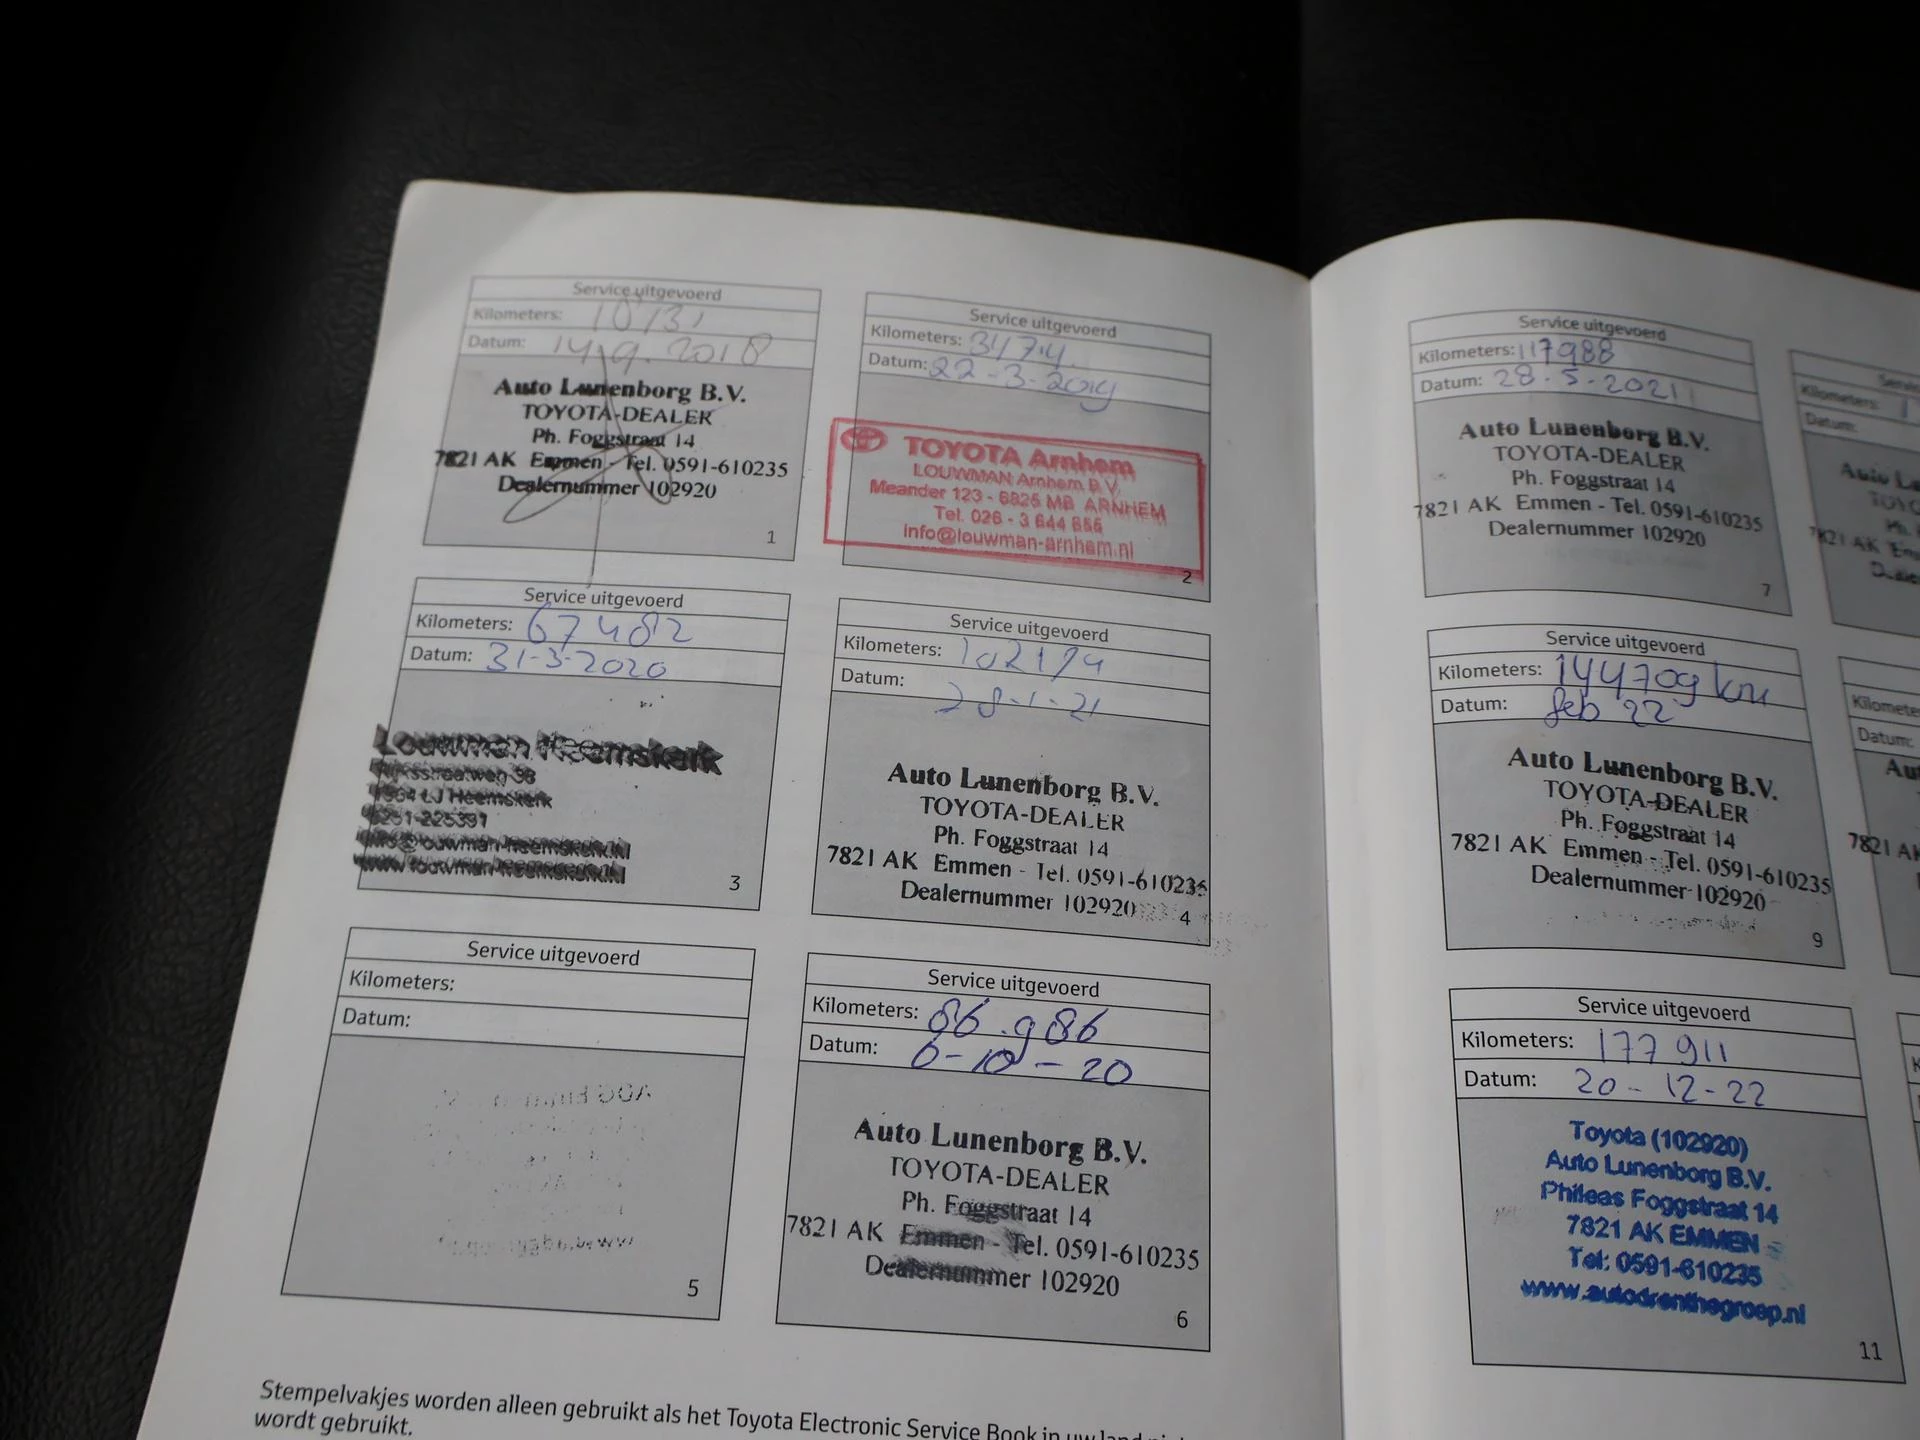 Service uitgevoerd
Kilometers:
Datum: 14.9.2018
Auto Lunenborg B.V.
TOYOTA-DEALER
Ph. Foggstraat 14
7821 AK Emmen - Tel. 0591-610235
Dealernummer 102920
1
Service uitgevoerd
Kilometers: 34774
Datum: 22-3-2019
TOYOTA Arnhem
LOUWMAN Arnhem B.V.
Meander 123 - 6825 MB ARNHEM
Tel. 026 - 3 644 655
info@louwman-arnhem.nl
2
Service uitgevoerd
Kilometers: 67482
Datum: 31-3-2020
Louwman Heemskerk
Rijksstraatweg 98
LJ Heemskerk
0251-225391
info@louwman-heemskerk.nl
www.louwman-heemskerk.nl
3
Service uitgevoerd
Kilometers:
Datum: 28-1-21
Auto Lunenborg B.V.
TOYOTA-DEALER
Ph. Foggstraat 14
7821 AK Emmen - Tel. 0591-610235
Dealernummer 102920
4
Service uitgevoerd
Kilometers:
Datum:
5
Service uitgevoerd
Kilometers: 86.986
Datum: 6-10-20
Auto Lunenborg B.V.
TOYOTA-DEALER
Ph. Foggstraat 14
7821 AK Emmen - Tel. 0591-610235
Dealernummer 102920
6
Stempelvakjes worden alleen gebruikt als het Toyota Electronic Service Book in uw land
wordt gebruikt.
Service uitgevoerd
Kilometers: 117988
Datum: 28.5.2021
Auto Lunenborg B.V.
TOYOTA-DEALER
Ph. Foggstraat 14
7821 AK Emmen - Tel. 0591-610235
Dealernummer 102920
7
Kilometers:
Datum:
Auto
7821 AK
Service uitgevoerd
Kilometers: 144709 km
Datum: feb 22
Auto Lunenborg B.V.
TOYOTA-DEALER
Ph. Foggstraat 14
7821 AK Emmen - Tel. 0591-610235
Dealernummer 102920
9
Datum:
7821 AK
Service uitgevoerd
Kilometers: 177911
Datum: 20-12-22
Toyota (102920)
Auto Lunenborg B.V.
Phileas Foggstraat 14
7821 AK EMMEN
Tel: 0591-610235
www.autodrenthegroep.nl
11